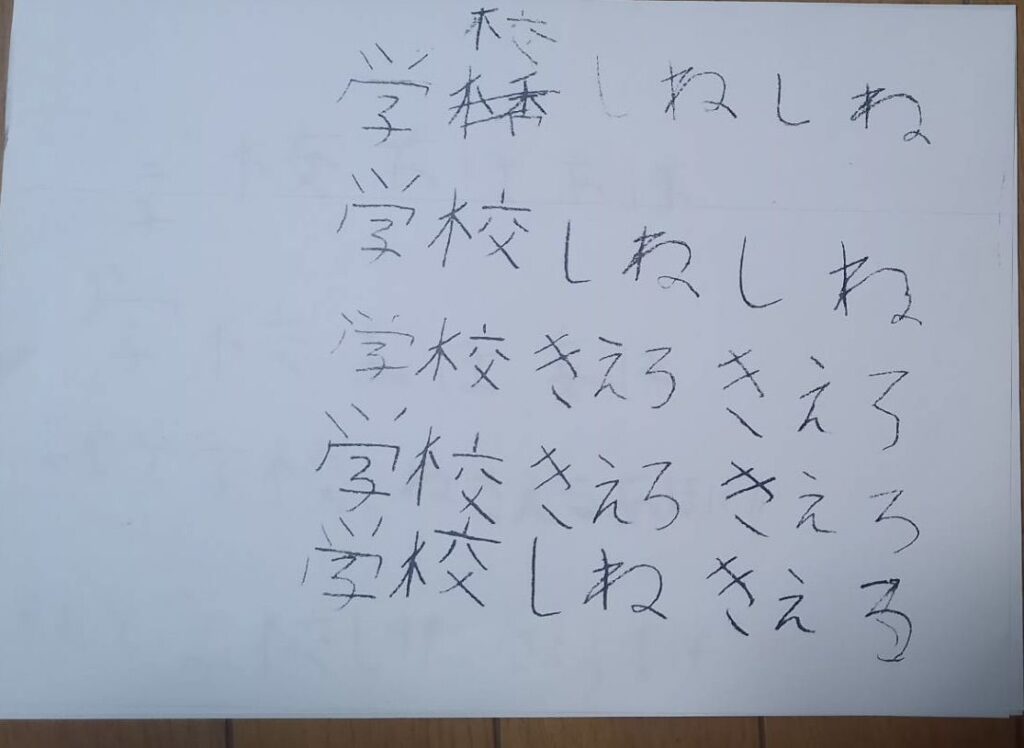 校
学しねしね
学校しねしね
学校きえろきえろ
学校きえろきえろ
学校しねきえろ